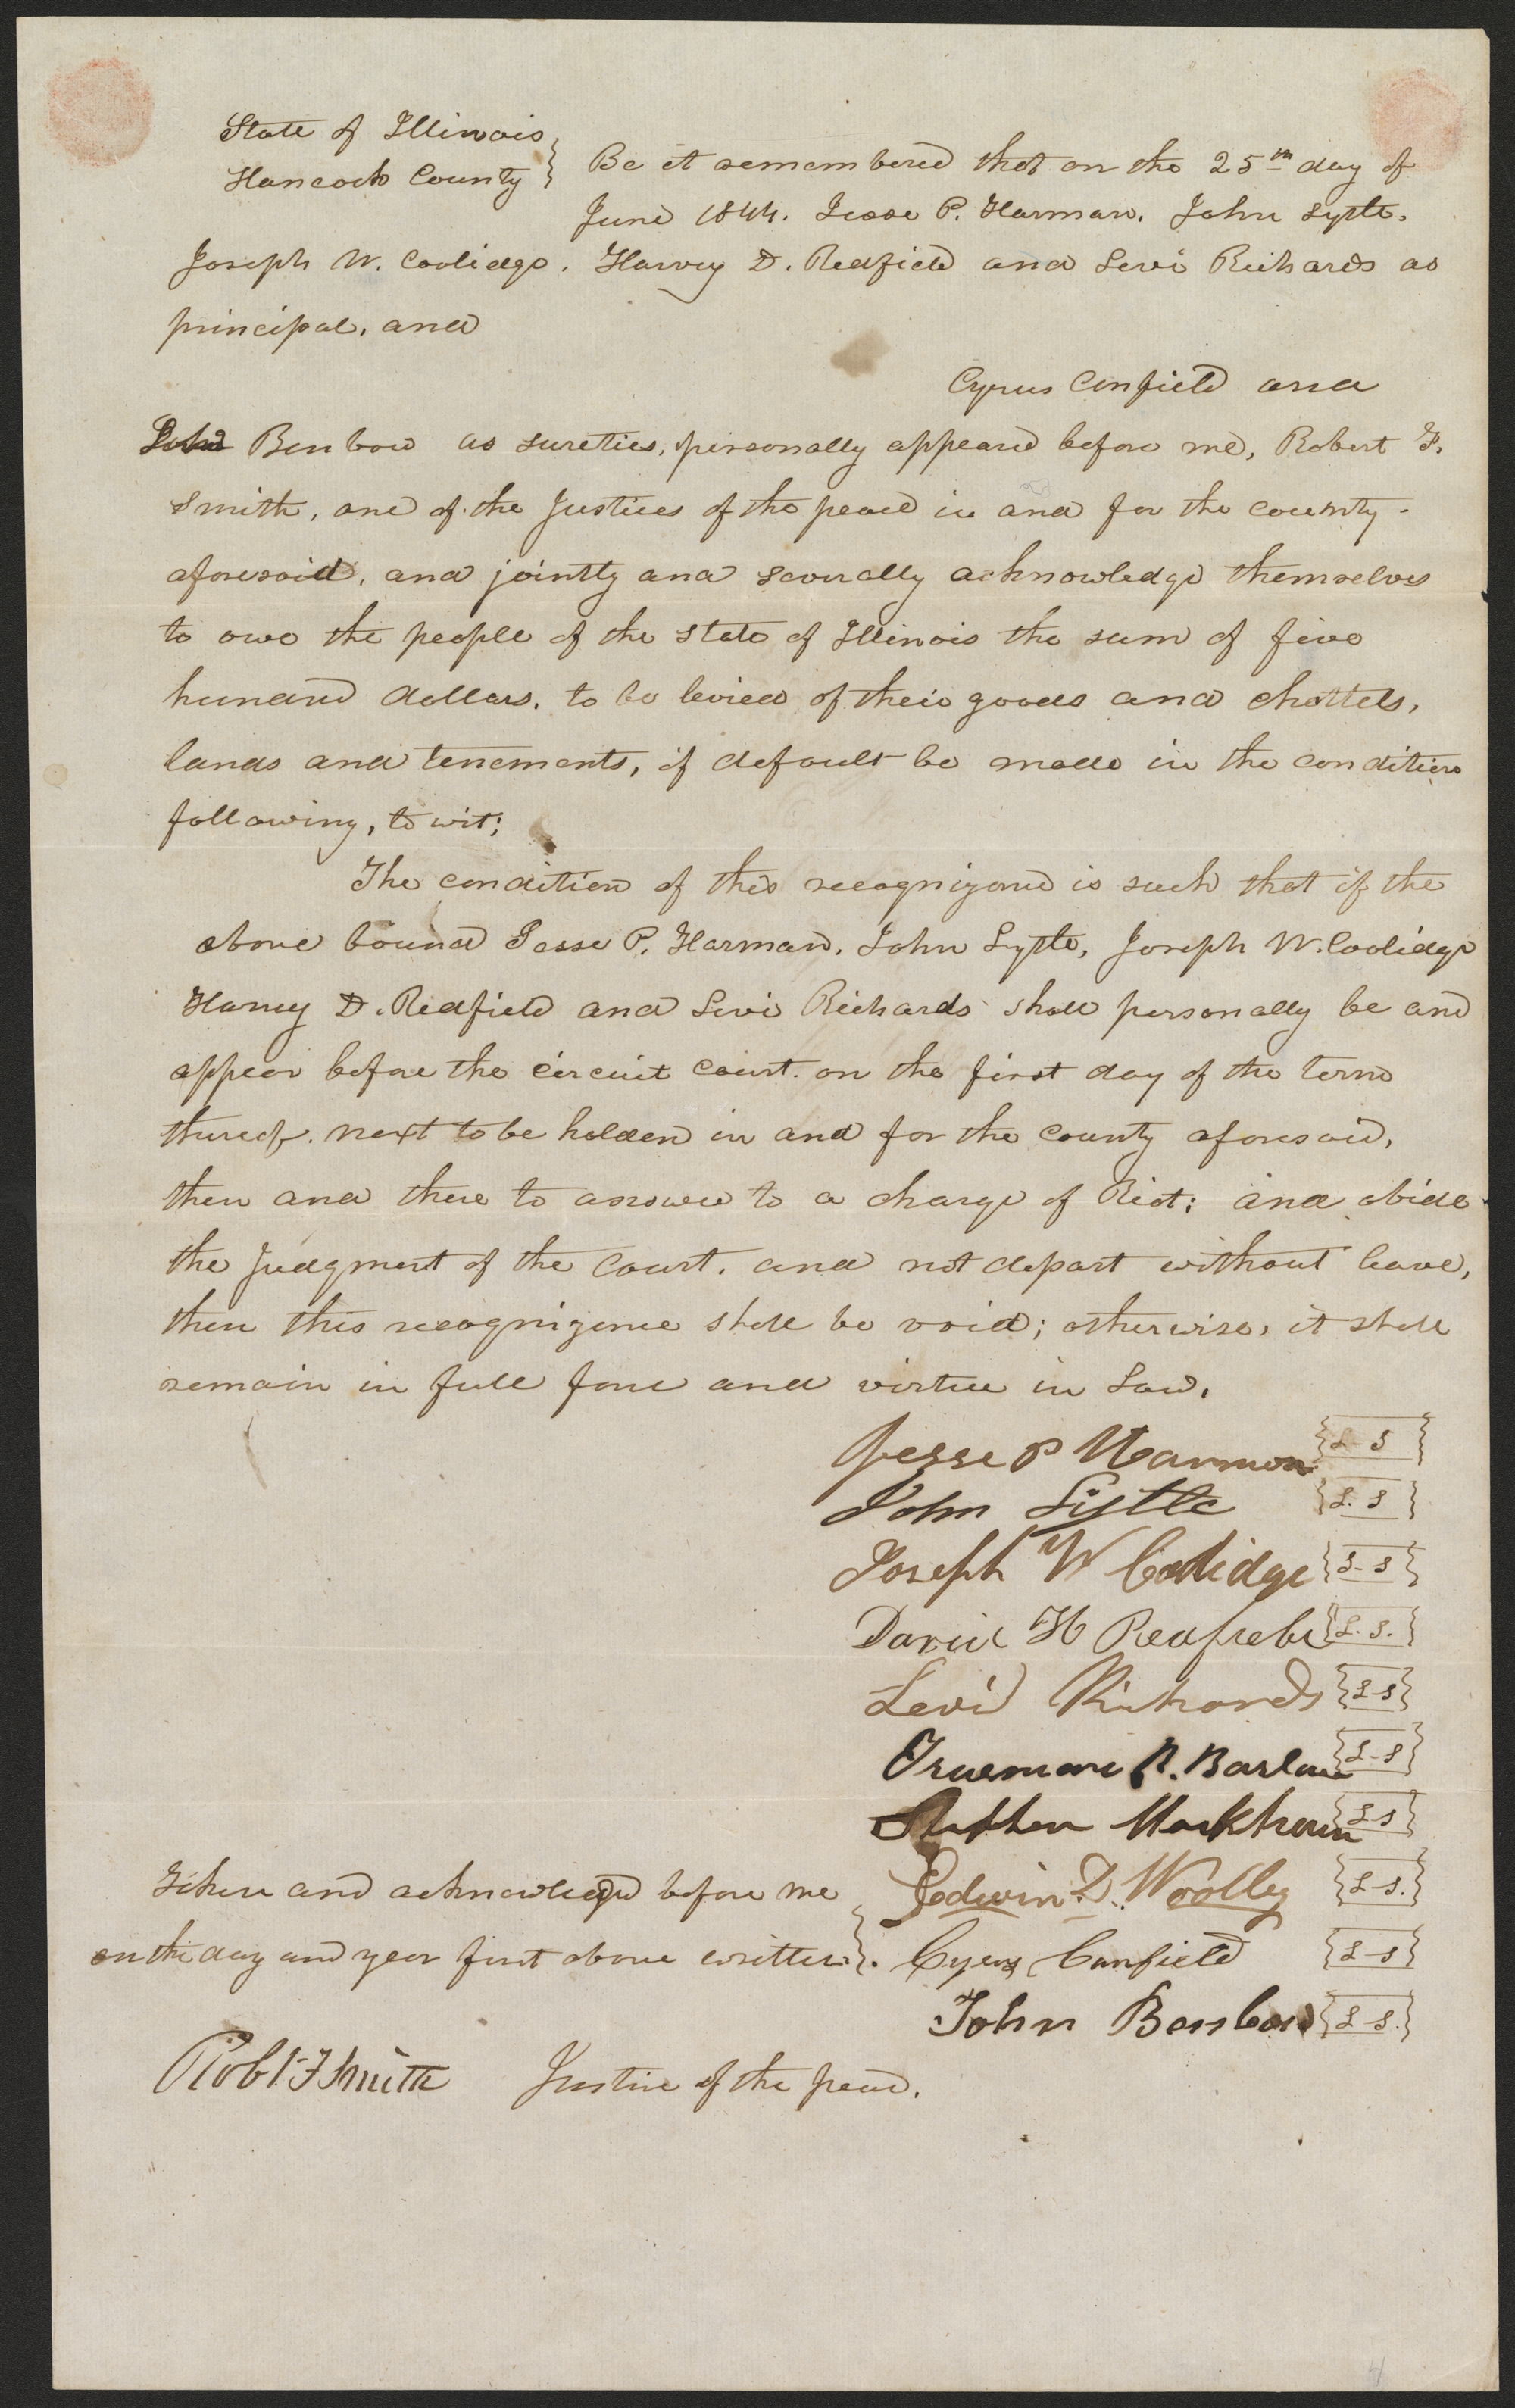 State of Illinois,
Hancock County } Be it remembered that on the 25th day of
June 1844. Jesse P. Harman. John Lytle.
Joseph W. Coolidge. Harvey D. Redfield and Levi Richards as
principal, and
Cyrus Canfield and
John Benbow as sureties, personally appeared before me, Robert F.
Smith, one of the Justices of the peace in and for the county
aforesaid, and jointly and severally acknowledge themselves
to owe the people of the state of Illinois the sum of five
hundred dollars. to be levied of their goods and chattels,
lands and tenements, if default be made in the condition
following, to wit;
The condition of this recognizance is such that if the
above bound Jesse P. Harman. John Lytle, Joseph W. Coolidge
Harvey D. Redfield and Levi Richards shall personally be and
appear before the circuit court. on the first day of the term
thereof. next to be holden in and for the county aforesaid,
then and there to answer to a charge of Riot; and abide
the Judgment of the Court. and not depart without leave,
then this recognizance shall be void; otherwise, it shall
remain in full force and virtue in Law.
Jesse P Harmon {L-S}
John Lytle {L.S}
Joseph W Coolidge {L-S}
David H Redfield {L.S.}
Levi Richards {L-S}
Trueman R. Barlow {L-S}
Stephen Markham {LS}
Taken and acknowledged before me Edwin D. Woolley {L-S.}
on the day and year first above written }. Cyrus Canfield {L-S}
John Benbow {L-S.}
Robt F Smith Justice of the peace.
4